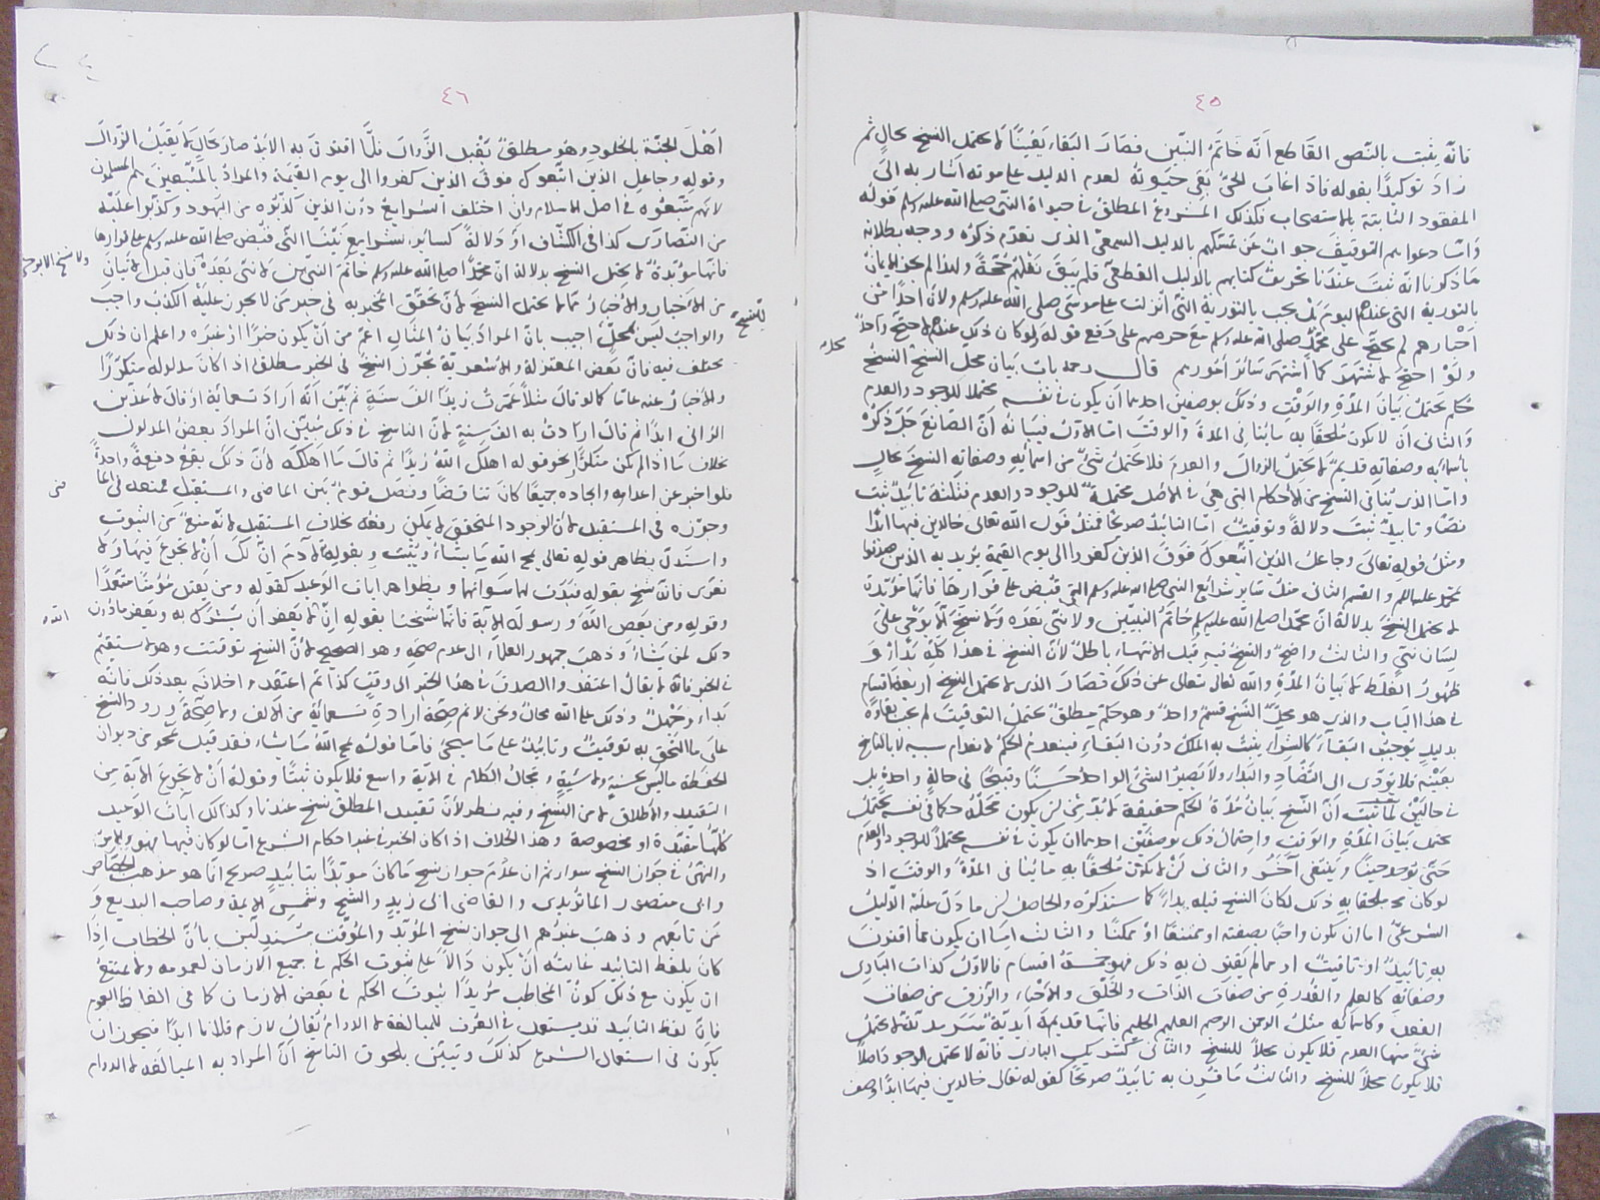 ٤٥
فانه يثبت بالنص القاطع انه خاتم النبيين فصار البقاء يقينًا لا يحتمل النسخ بحال ثم
زاد توكيدًا بقوله فاذا غاب الحي بقي حيوته لعدم الدليل على موته اشار به الى
المفقود الثابتة بالاستصحاب فكذلك المشروع المطلق في حيوة النبي صلى الله عليه وسلم قوله
واما دعواهم التوقيف جواب عن تمسكهم بالدليل السمعي الذي تقدم ذكره ووجه بطلانه
ما ذكرنا انه ثبت عندنا تحريف كتابهم بالدليل القطعي فلم يبق نقلهم حجة ولهذا لم يجز الايمان
بالتورية التي عندهم اليوم بل يجب بالتورية التي انزلت على موسى صلى الله عليه وسلم ولان احدًا من
احبارهم لم يحتج على محمد صلى الله عليه وسلم مع حرصهم على دفع قوله ولو كان ذلك عندهم لاحتج واحدٌ
ولو احتج لاشتهر كما اشتهر سائر امورهم قال رحمه باب بيان محل النسخ النسخ
حكم يحتمل بيان المدة والوقت وذلك بوصفين احدهما ان يكون في نفسه محتملا للوجود والعدم
والثاني ان لا يكون ملحقًا به ما ينافي المدة والوقت اما الاول فبيانه ان الصانع جل ذكره
باسمائه وصفاته قديم لا يحتمل الزوال والعدم فلا يحتمل شيء من اسمائه وصفاته النسخ بحال
واما الذي ينافي النسخ من الاحكام التي هي في الاصل محتملة للوجود والعدم فثلثة تابيد ثبت
نصًا وتابيد ثبت دلالة وتوقيت اما التابيد صريحًا فمثل قول الله تعالى خالدين فيها ابدًا
ومثل قوله تعالى وجاعل الذين اتبعوك فوق الذين كفروا الى يوم القيمة يريد به الذين صدقوا
بمحمد عليه السلام والقسم الثاني مثل سائر شرائع النبي صلى الله عليه وسلم التي قبض على قرارها فانها مؤبدة
لا يحتمل النسخ بدلالة ان محمدًا صلى الله عليه وسلم خاتم النبيين ولا نبي بعده ولا نسخ الا بوحي على
لسان نبي والثالث واضح والنسخ فيه قبل الانتهاء باطل لان النسخ في هذا كله بداء و
ظهور الغلط لا بيان المدة والله تعالى يتعالى عن ذلك فصار الذي لا يحتمل النسخ اربعة اقسام
في هذا الباب والذي هو محل النسخ قسم واحد وهو حكم مطلق يحتمل التوقيت لم يجب بقاؤه
بدليل يوجب البقاء كالشراء يثبت به الملك دون البقاء فينعدم الحكم لانعدام سببه لا بالناسخ
بعينه فلا يؤدي الى التضاد والبداء ولا يصير الشيء الواحد حسنًا وقبيحًا في حالة واحدة بل
في حالتين لما ثبت ان النسخ بيان مدة الحكم حقيقة لا بد من ان يكون محله حكما في نفسه يحتمل
يحتمل بيان المدة والوقت واحتمال ذلك بوصفين احدهما ان يكون في نفسه محتملا للوجود والعدم
حتى يوجد حينًا وينتفي آخر والثاني ان لا يكون ملحقًا به ما ينافي المدة والوقت اذ
لو كان ملحقًا به ذلك لكان النسخ قبله بداءً كما سنذكره والحاصل ان ما دل عليه الدليل
الشرعي اما ان يكون واجبًا بصفته او ممتنعًا او ممكنًا والثالث اما ان يكون مما اقترن
به تابيد او تاقيت او مما لم يقترن به ذلك فهو خمسة اقسام فالاول كذات الباري
وصفاته كالعلم والقدرة من صفات الذات والخلق والاحياء والرزق من صفات
الفعل وكاسمائه مثل الرحمن الرحيم العليم الحليم فانها قديمة ابدية سرمدية لا يحتمل
شيء منها العدم فلا يكون محلا للنسخ والثاني كشريك الباري فانه لا يحتمل الوجود اصلا
فلا يكون محلا للنسخ والثالث ما قرن به تابيد صريحًا كقوله تعالى خالدين فيها ابدًا وصف
٤٦
اهل الجنة بالخلود وهو مطلق يقبل الزوال فلما اقترن به الابد صار بحال لا يقبل الزوال
وقوله وجاعل الذين اتبعوك فوق الذين كفروا الى يوم القيمة والمراد بالمتبعين هم المسلمون
لانهم متبعوه في اصل الاسلام وان اختلف الشرايع دون الذين كذبوه من اليهود وكذبوا عليه
من النصارى كذا في الكشاف او دلالة كسائر شرايع نبينا التي قبض صلى الله عليه وسلم على قرارها
فانها مؤبدة لا يحتمل النسخ بدلالة ان محمدًا صلى الله عليه وسلم خاتم النبيين لا نبي بعده فان قيل لا تبيان
ولا نسخ الا بوحي
من الاخبار والاخبار مما لا يحتمل النسخ لان تحقق المخبر به في خبر من لا يجوز عليه الكذب واجب
والواجب ليس بمحل للنسخ اجيب بان المراد بيان المثال اعم من ان يكون خبرًا او غيره واعلم ان ذلك
مختلف فيه فان بعض المعتزلة والاشعرية يجوز النسخ في الخبر مطلق اذا كان مدلوله متكررًا
والاخبار عنه عاما كما لو قال مثلا عمرت زيدًا الف سنة ثم بين انه اراد تسعمائة او قال لاعذبن
الزاني ابدًا ثم قال اردت به الف سنة لان الناسخ في ذلك يبين ان المراد بعض المدلول
بخلاف ما اذا لم يكن متكررًا نحو قوله اهلك الله زيدًا ثم قال ما اهلكه لان ذلك يقع دفعة واحدة
فلو اخبر عن اعدامه وايجاده جميعًا كان تناقضًا وفصل قوم بين الماضي والمستقبل فمنعه في الماضي
وجوزه في المستقبل لان الوجود المتحقق لا يمكن رفعه بخلاف المستقبل لانه منع من الثبوت
واستدل بظاهر قوله تعالى يمحو الله ما يشاء ويثبت وبقوله لآدم ان لك ان لا تجوع فيها ولا
تعرى فانه نسخ بقوله فبدت لهما سوآتهما وبظواهر ايات الوعيد كقوله ومن يقتل مؤمنًا متعمدًا
وقوله ومن يعص الله ورسوله الآية فانها نسخت بقوله ان الله لا يغفر ان يشرك به ويغفر ما دون
ذلك لمن يشاء وذهب جمهور العلماء الى عدم صحته وهو الصحيح لان النسخ توقيت وهو لا يستقيم
في الخبر فانه لا يقال اعتقد والصدق في هذا الخبر الى وقت كذا ثم اعتقد واخلافه بعد ذلك فانه
بداء وجهل وذلك على الله محال ونحن لا نم صحة ارادة تسعمائة من الالف ولا صحة ورود النسخ
على ما التحق به توقيت وتابيد على ما سيجيء فاما قوله يمحو الله ما يشاء فقد قيل يمحو من ديوان
الحفظة ما ليس بحسنة ولا سيئة ومجال الكلام في الآية واسع فلا يكون ثبتًا وقوله ان لا تجوع الآية من
التقييد والاطلاق لا من النسخ وفيه نظر لان تقييد المطلق نسخ عندنا وكذا تلك ايات الوعيد
كلها مقيدة او مخصوصة وهذا الخلاف اذا كان الخبر في غير احكام الشرع اما لو كان فيها فهو والامر
والنهي في جواز النسخ سواء ثم ان عدم جواز نسخ ما كان مؤبدًا بتابيد صريح انما هو مذهب الجصاص
وابي منصور الماتريدي والقاضي ابي زيد والشيخ وشمس الايمة وصاحب البديع و
من تابعهم وذهب غيرهم الى جواز نسخ المؤبد والموقت مستدلين بان الخطاب اذا
كان بلفظ التابيد غايته ان يكون دالا على ثبوت الحكم في جميع الازمان لعمومه ولا يمتنع
ان يكون مع ذلك كون المخاطب مريدًا ثبوت الحكم في بعض الازمان كما في الفاظ العموم
فان لفظ التابيد قد يستعمل في العرف للمبالغة لا الدوام يقال لازم فلانا ابدًا فيجوز ان
يكون في استعمال الشرع كذلك ويتبين بلحوق الناسخ ان المراد به المبالغة لا الدوام